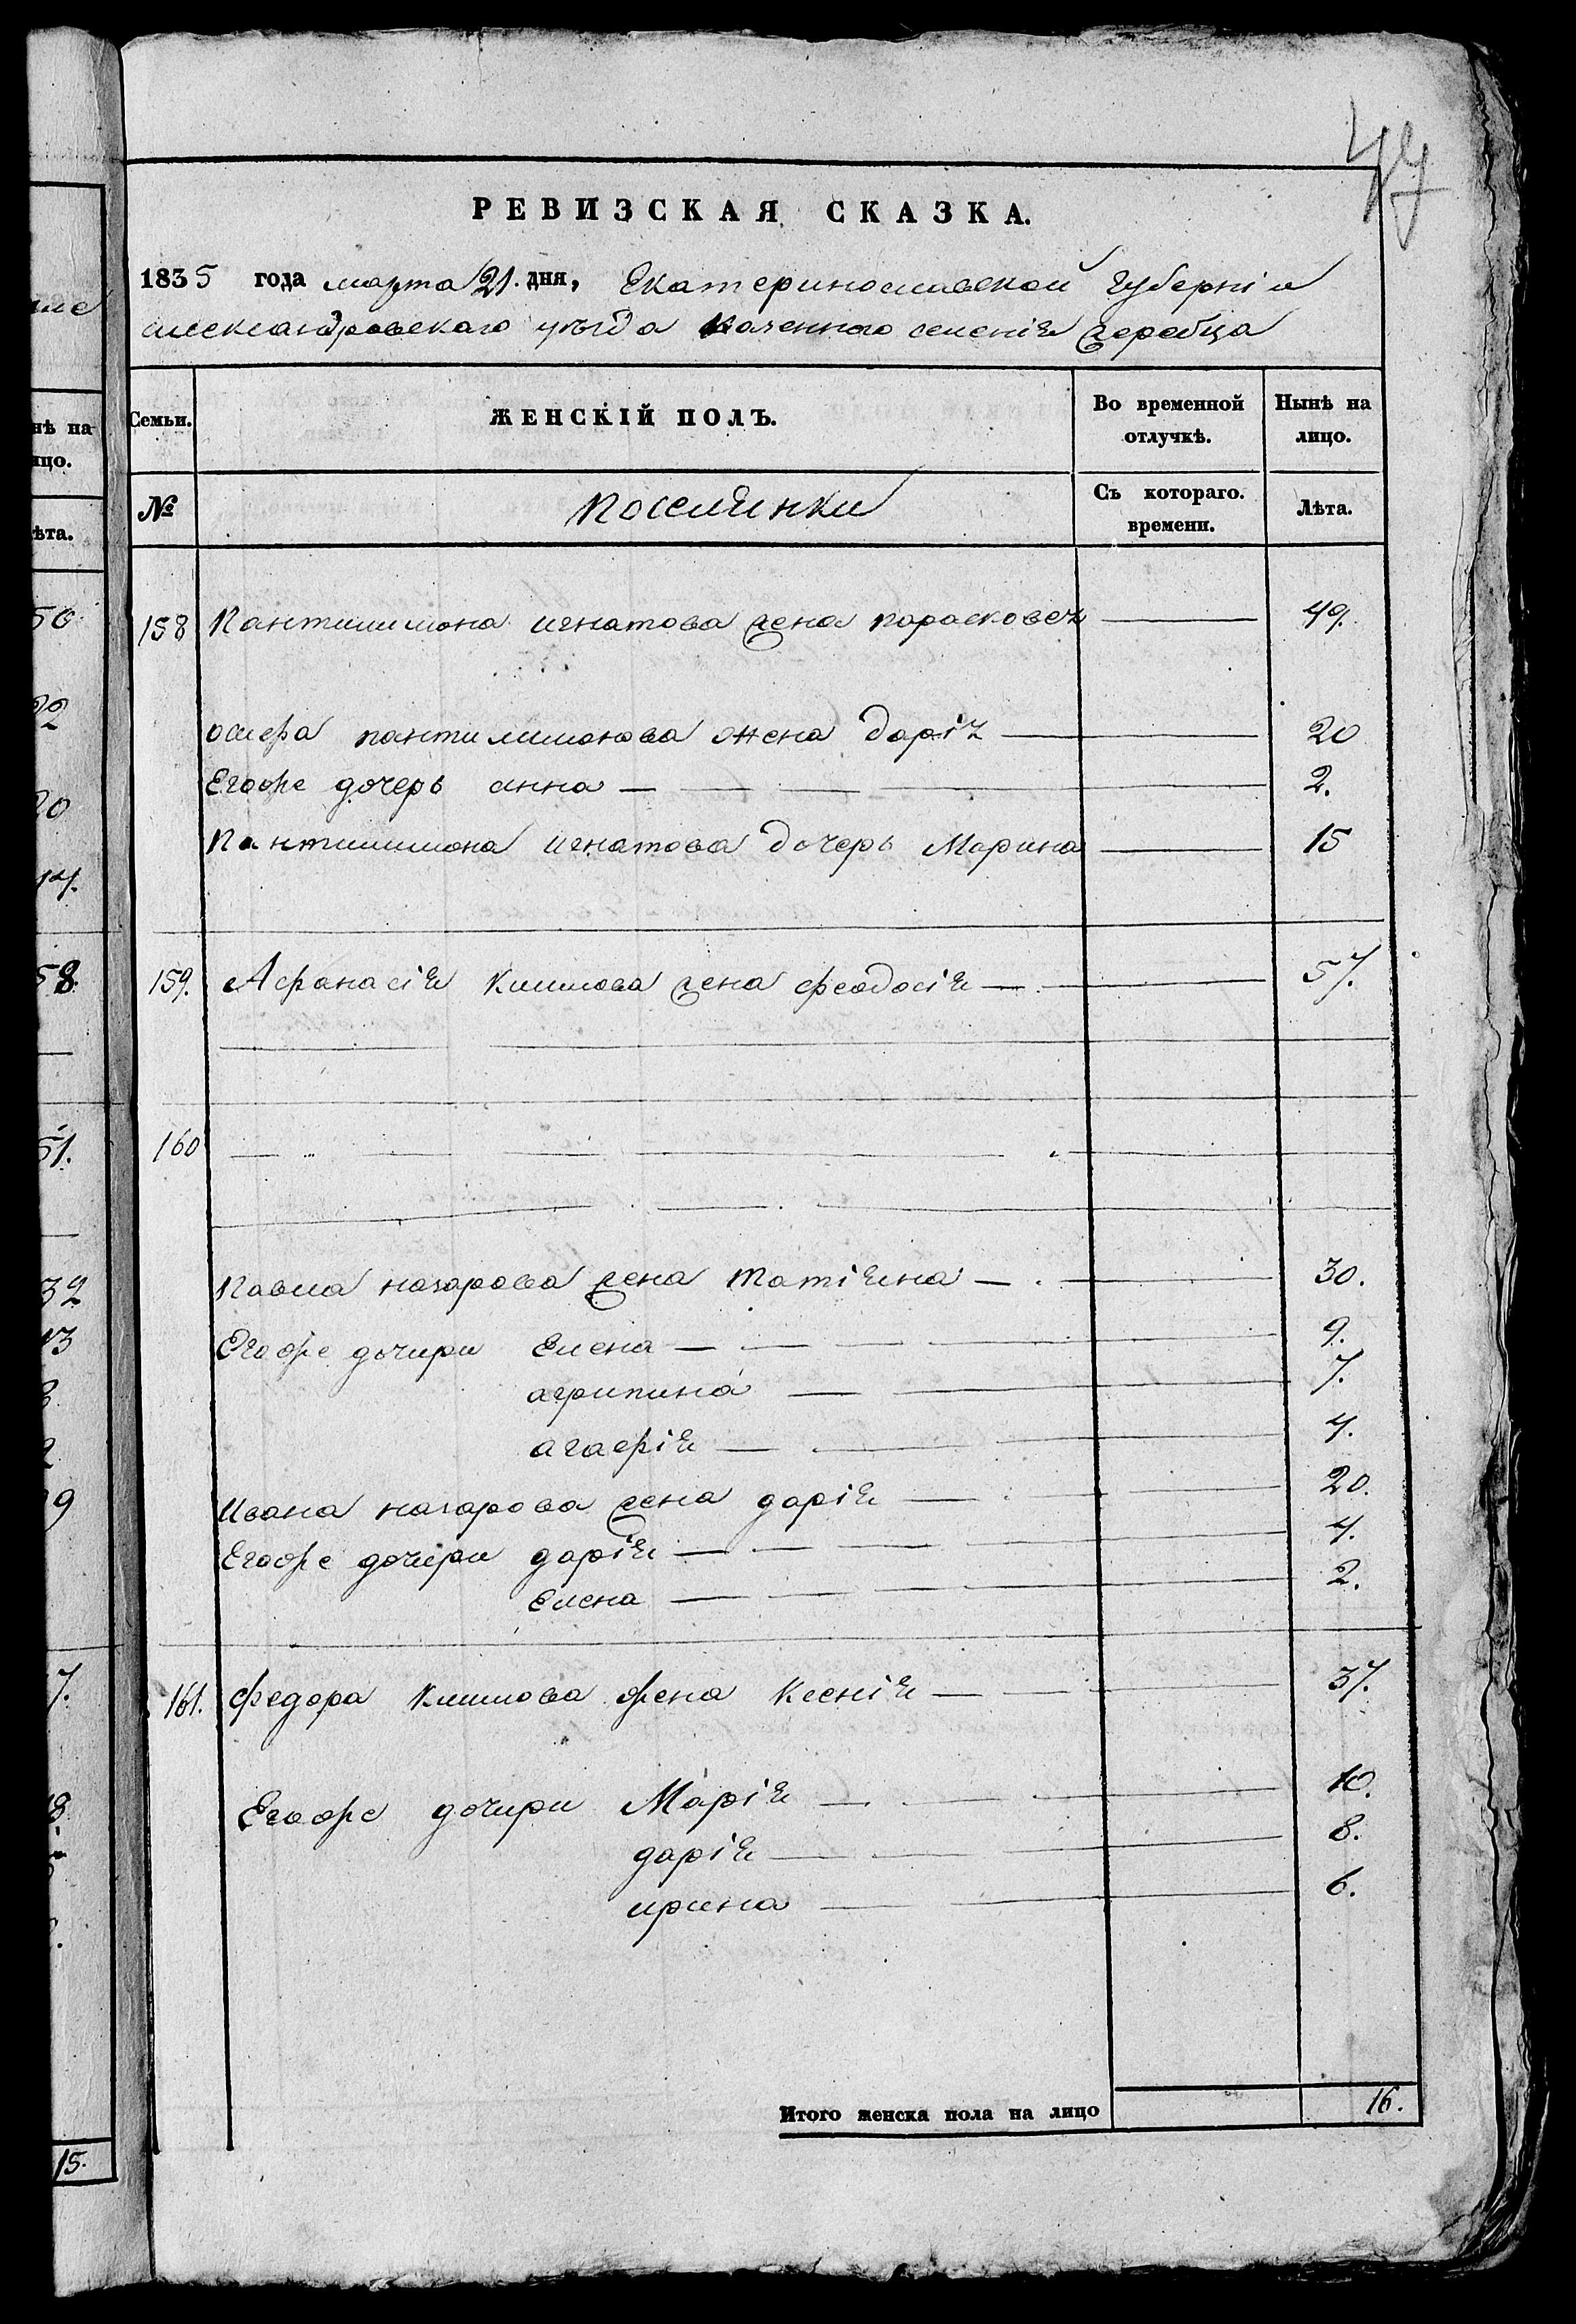 РЕВИЗСКАЯ СКАЗКА.
1835 года марта 21. дня, Екатеринославской Губернiи
александровскаго уѣзда казенного селенiя жеребца
Семьи. ЖЕНСКIЙ ПОЛЪ. Во временной отлучкѣ. Нынѣ на лицо.
№ поселянки Съ котораго времени. Лѣта.
158 Пантилимона игнатова жена парасковея 49.
пантилимонова жена дарiя 20
Егоже дочерь анна 2.
Пантилимона игнатова дочерь Марина 15
159. Афанасiя климова жена феодосiя 57.
160
Павла назарова жена татiяна 30.
Егоже дочири Елена 9.
агрипина 7.
агафiя 4.
Ивана назарова жена дарiя 20.
Егоже дочири дарiя 4.
Елена 2.
161. Федора климова жена ксенiя 37.
Егоже дочири Марiя 10.
дарiя 8.
ирина 6.
Итого женска пола на лицо 16.